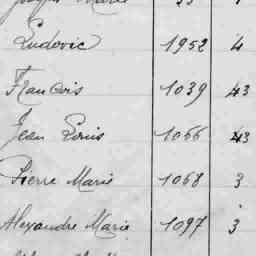 Joseph Marie
Ludovic 1952 4
François 1039 43
Jean Louis 1066 43
Pierre Marie 1068 3
Alexandre Marie 1097 3